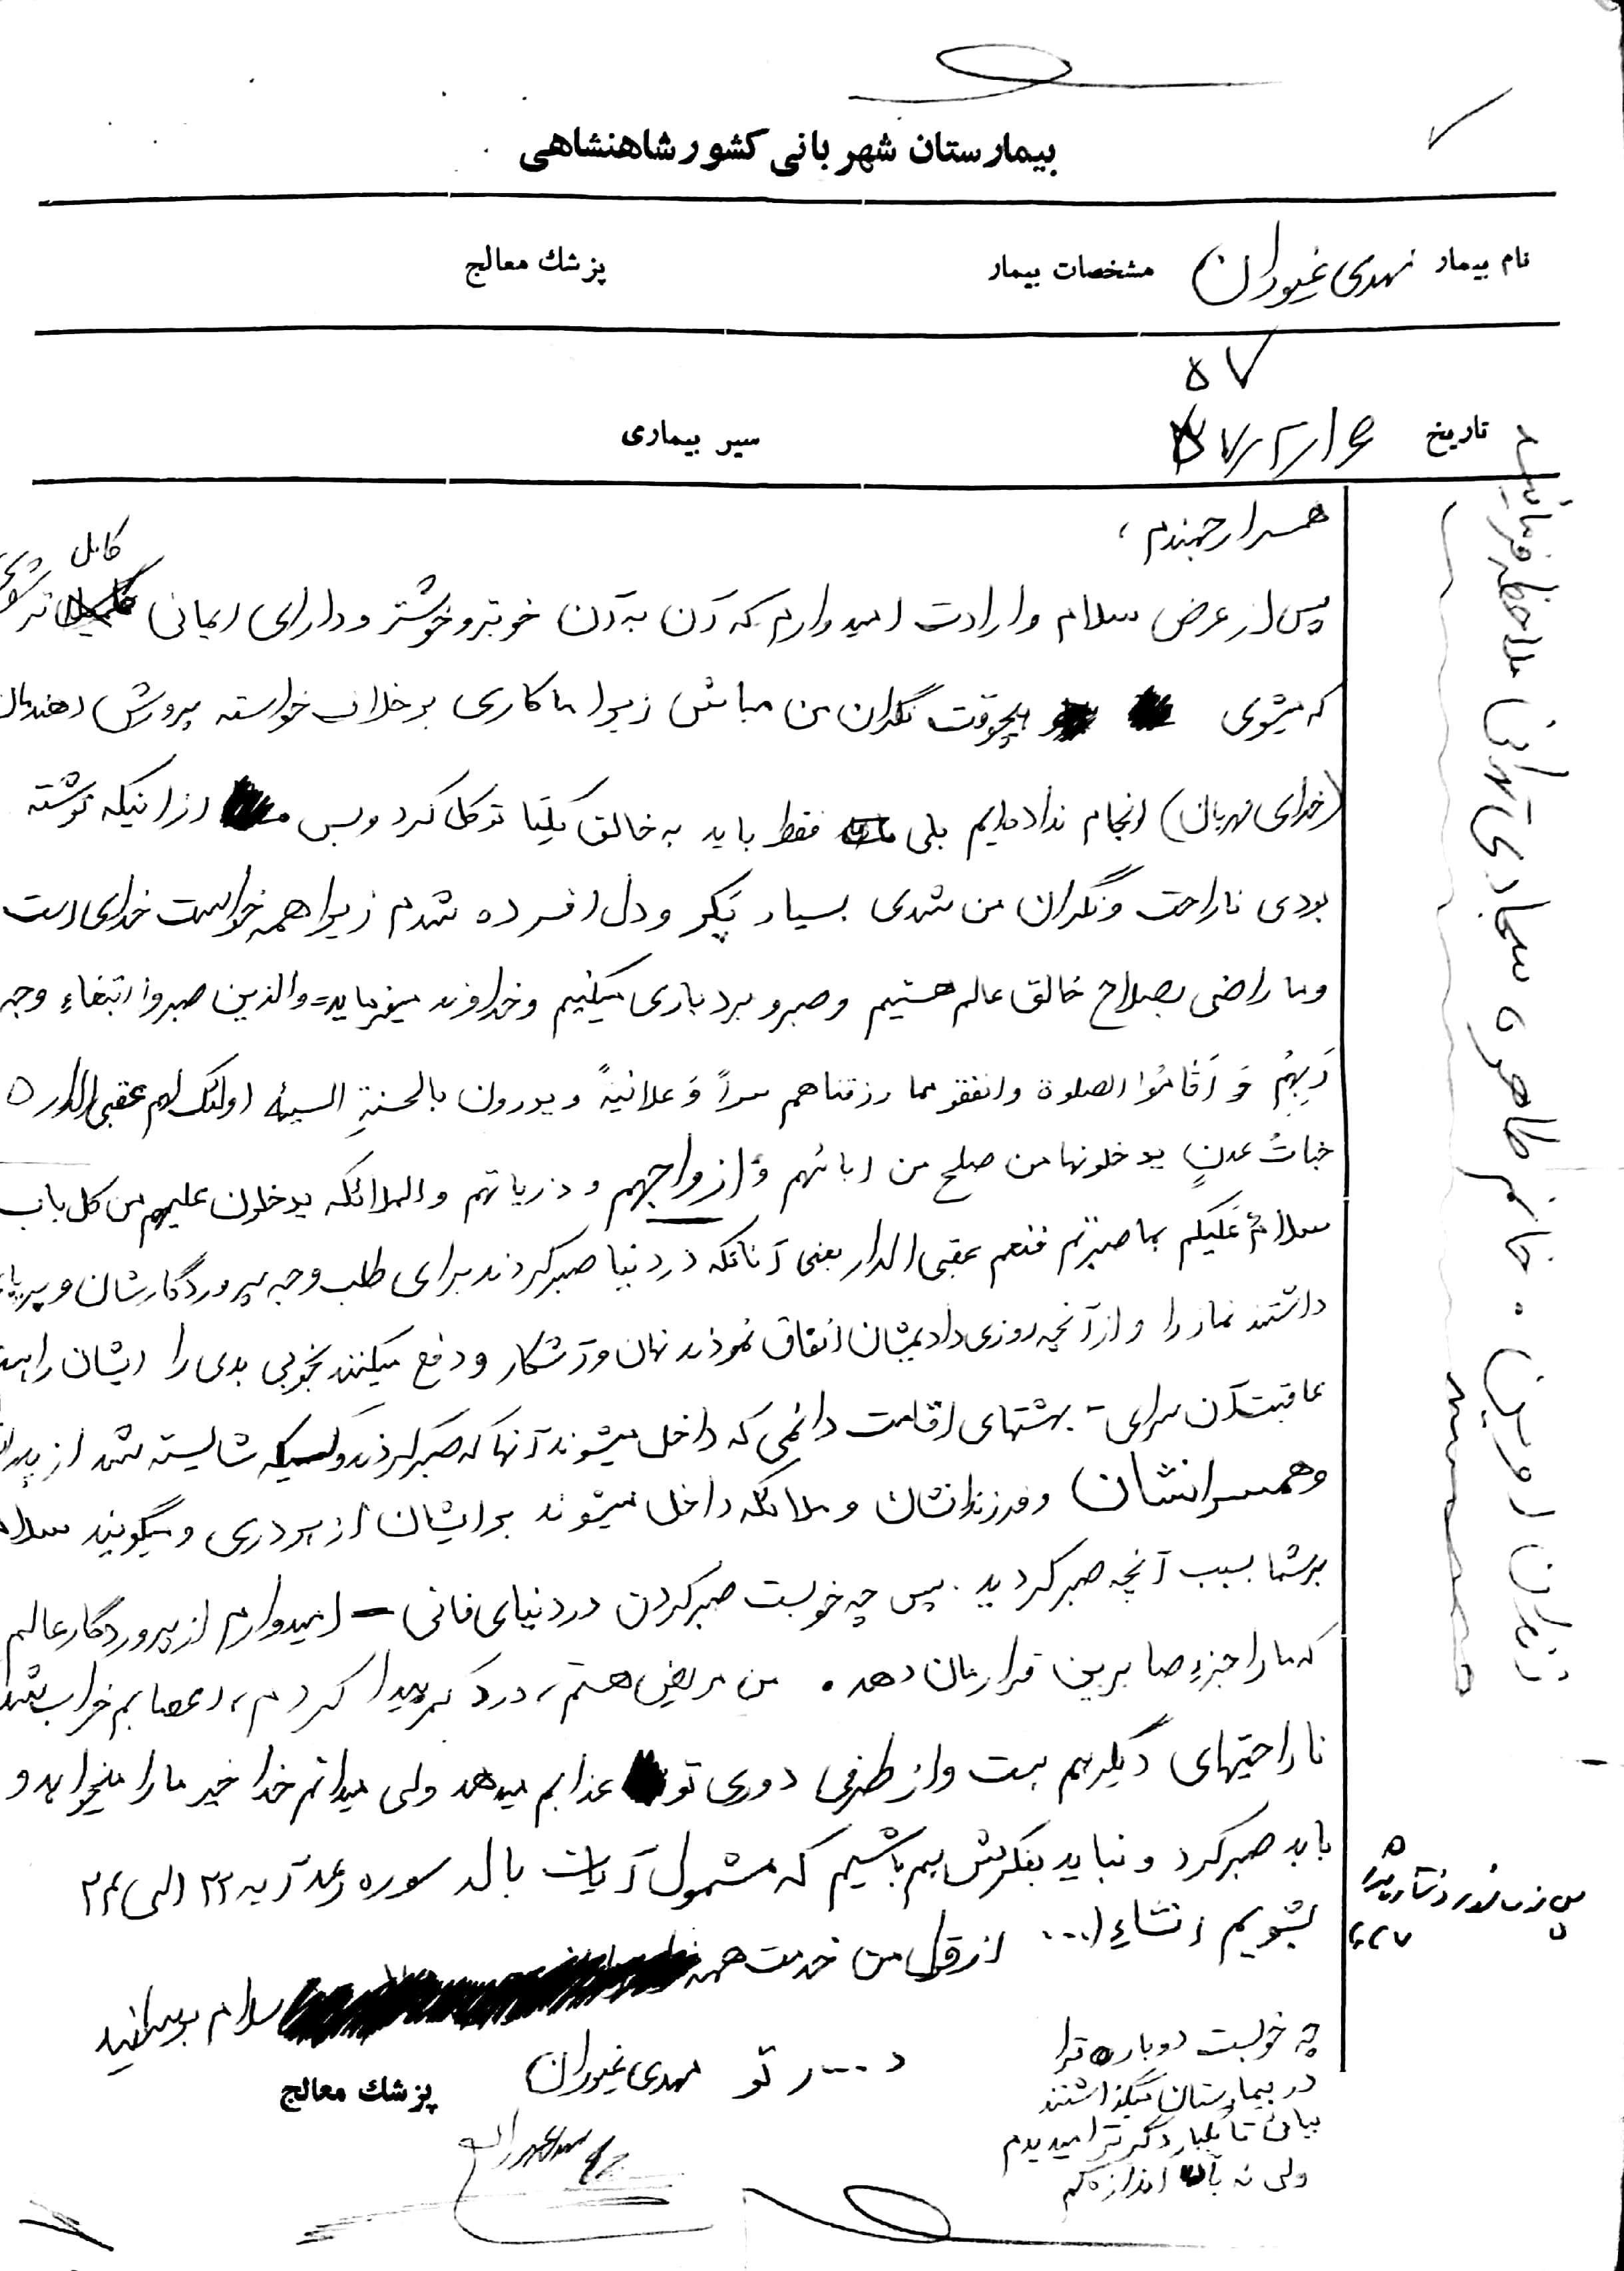 بیمارستان شهربانی کشور شاهنشاهی
نام بیمار مهدی غیوران مشخصات بیمار پزشك معالج
۵۷
تاریخ ۵۷/۲/۱۶ سیر بیماری
همسر ارجمندم ،
کامل
پس از عرض سلام و ارادت امیدوارم که آن به آن خوبتر و خوشتر و دارای ایمانی تر
که میشوی هیچوقت نگران من مباش زیرا ما کاری برخلاف خواسته پرورش دهندمان
(خدای مهربان) انجام نداده‌ایم بلی فقط باید به خالق یکتا توکل کرد و بس از اینکه نوشته
بودی ناراحت و نگران من شدی بسیار پکر و دل افسرده شدم زیرا همه خواست خدای است
و ما راضی بصلاح خالق عالم هستیم و صبر و بردباری میکنیم و خداوند میفرماید= والذین صبروا ابتغاء وجه
رَبِهِم وَ اَقامُوا الصلوة و انفقو مما رزقناهم سراً وَ علانیةً و یدرون بالحسنةِ السیئه اولئک لهم عقبی الدار ٥
جناتُ عدنٍ یدخلونها من صلح من ابائهم وَ ازواجهم و ذریاتهم والملائکه یدخلون علیهم من کل باب
سلامٌ عَلیکم بما صبرتم فنعم عقبی الدار یعنی آنانکه در دنیا صبر کردند برای طلب وجه پروردگارشان و برپای
داشتند نماز را و از آنچه روزی دادیمشان انفاق نمودند نهان و آشکار و دفع میکنند بخوبی بدی را ایشان راست
عاقبت آن سرای - بهشتهای اقامت دائمی که داخل میشوند آنها که صبر کردند و کسیکه شایسته شد از
و همسرانشان و فرزندانشان و ملائکه داخل میشوند برایشان از هر دری و میگویند سلام
برشما بسبب آنچه صبر کردید. پس چه خوبست صبر کردن در دنیای فانی - امیدوارم از پروردگار عالم
که ما را جزءِ صابرین قرارمان دهد. من مریض هستم، درد کمر پیدا کردم، اعصابم خراب شد
ناراحتیهای دیگر هم هست و از طرفی دوری تو عذابم میدهد ولی میدانم خدا خیر ما را میخواهد و
باید صبر کرد و نباید بفکرش هم باشیم که مشمول آیات بالا سوره رعد آیه ۲۲ الی ۲۴
بشویم انشاء ا... از قول من خدمت همه سلام برسانید
د....ر تو مهدی غیوران
پزشك معالج
چه خوبست دوباره ترا
در بیمارستان میگذاشتند
بیائی تا یکبار دگر ترا میدیدم
ولی نه بآن اندازه کم
زندان اوین . خانم طاهره سجادی تهرانی ملاحظه فرمائید